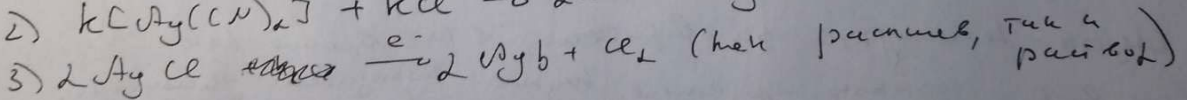 2) K[Ag(CN)₂] + KCl
3) 2 AgCl e⁻ → 2 Agb + Cl₂ (как расплав, так и раствор)